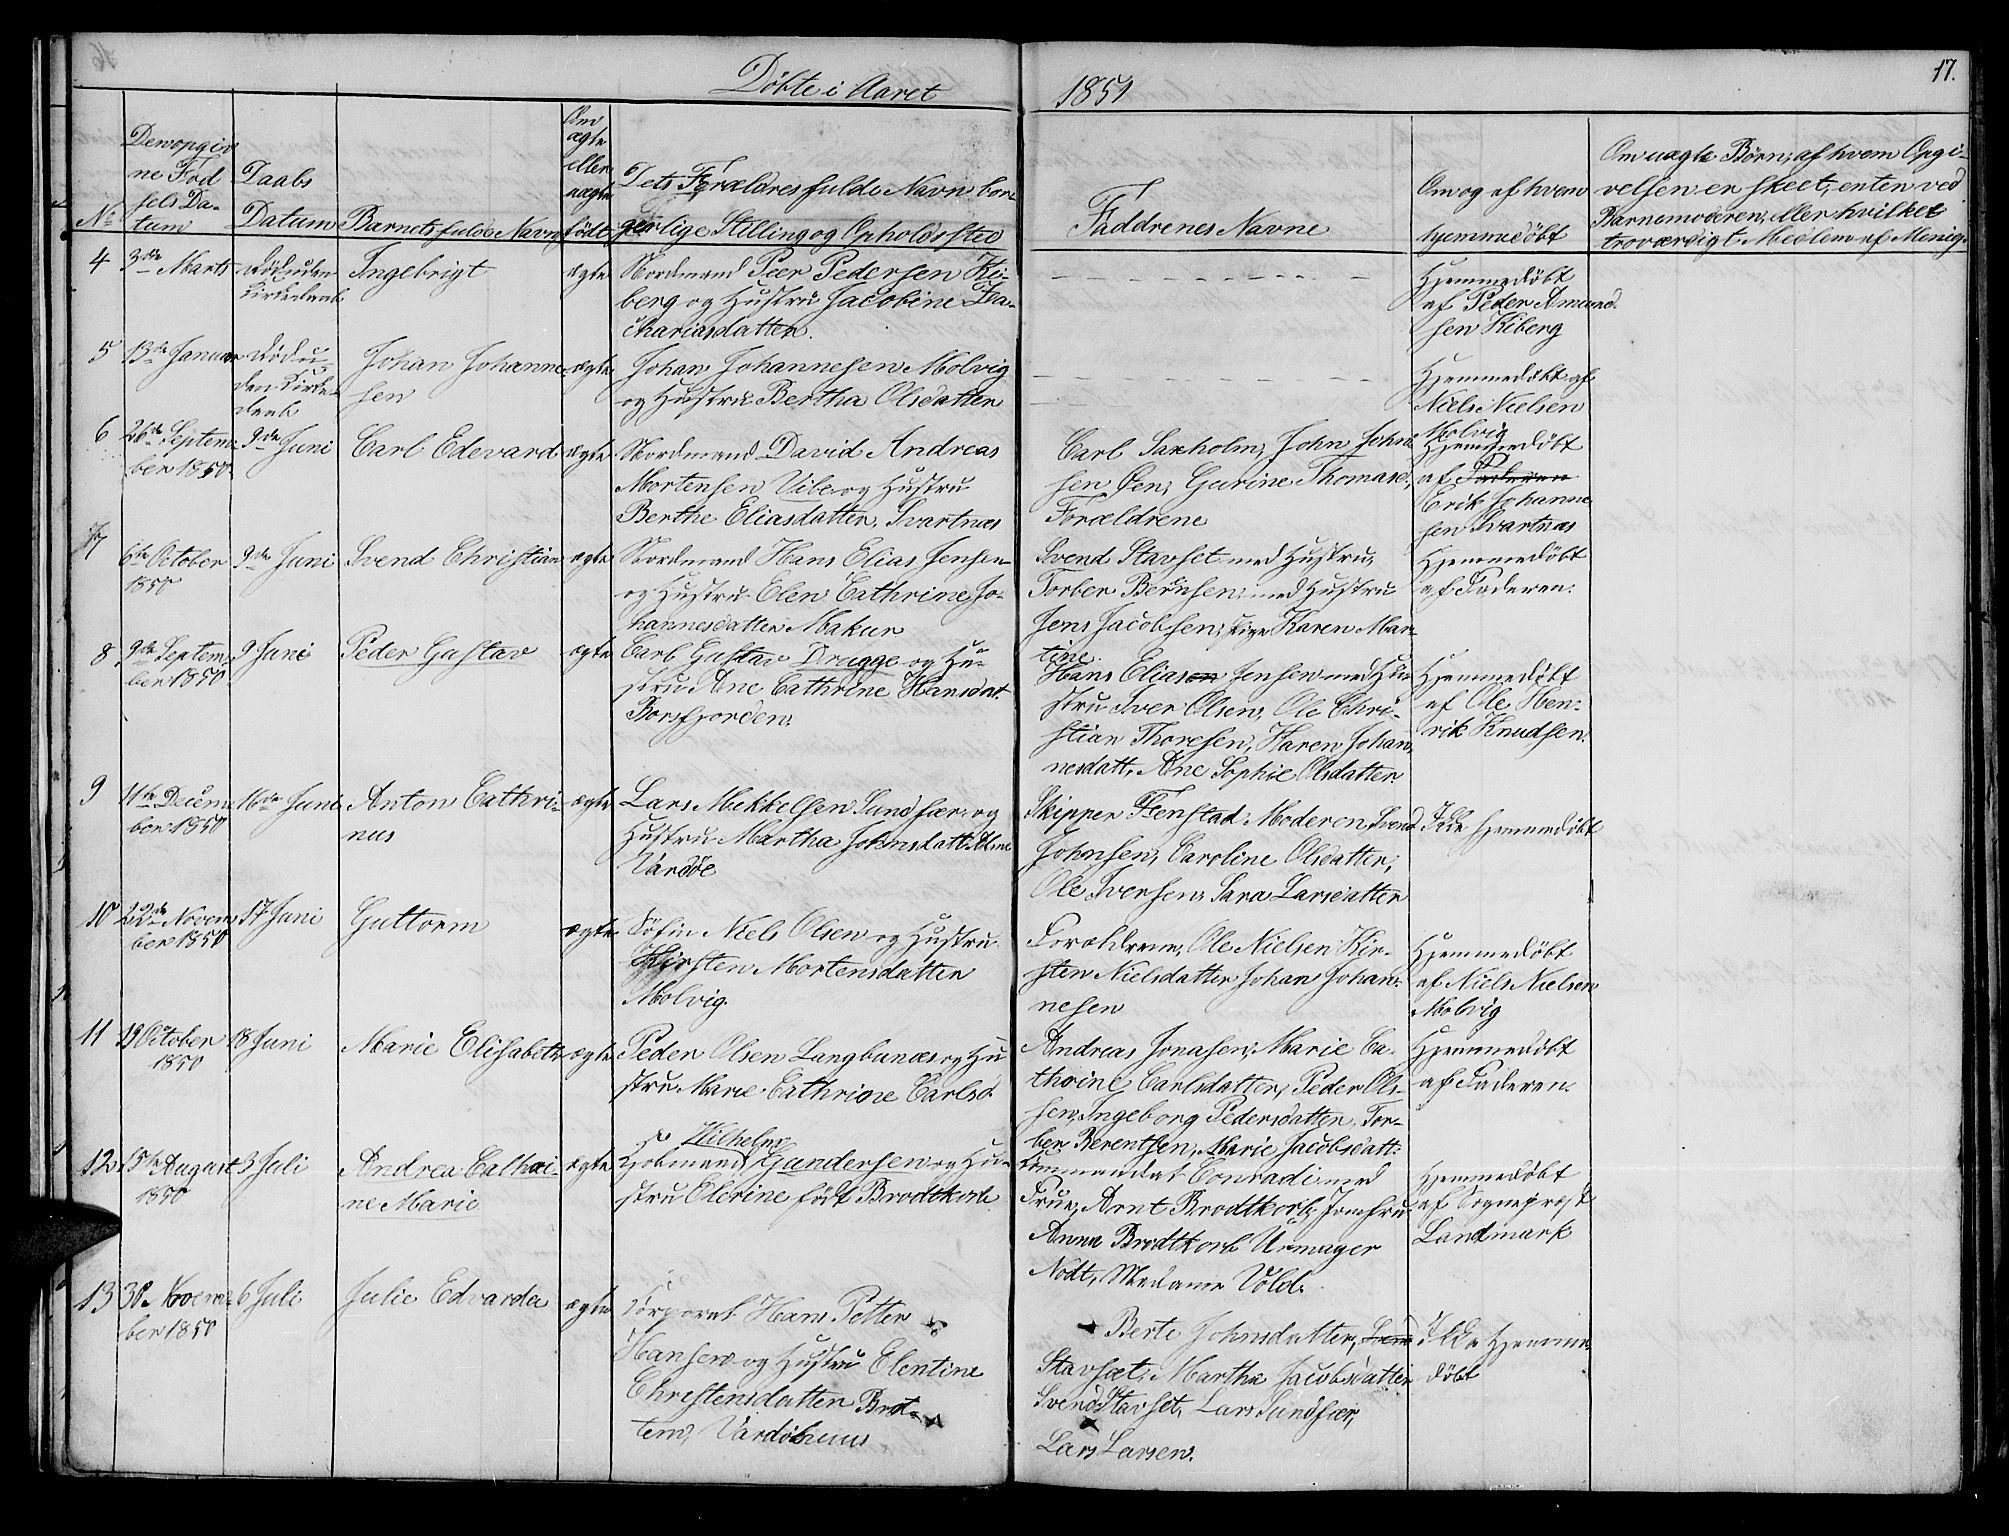 Døbte i Aaret 1851
17.
No
Den opgiv
ne Fød
sels Da-
tum
Daabs
Datum
Barnets fulde Navn
Om
ægte
eller
uægte
født
Dets Forældres fulde Navn bor-
gerlige Stilling og Opholdssted
Faddrenes Navne
Om og af hvem
hjemmedøbt
Om uægte Børn; af hvem Opgi-
velsen er skeet, enten ved
Barnemoderen, eller hvilket
troværdigt Medlem af Menig.
4
3die Marts
død uden
Kirkedaab
Ingebrigt
ægte
Nordmand Peer Pedersen Ki-
berg og Hustru Jacobine Za-
chariasdatter.
Hjemmedøbt
af Peder Amund
sen Kiberg
5
13de Januar
død u-
den Kirke-
daab
Johan Johanne
sen
ægte
Johan Johannesen Molvig
og Hustru Bertha Olsdatter
Hjemmedøbt af
Niels Nielsen
Molvig
6
26de Septem
ber 1850
9de Juni
Carl Edevard
ægte
Nordmand David Andreas
Mortensen Vibe og Hustru
Berthe Eliasdatter, Svartnæs
Carl Saxholm, John John
sen Øen, Gurine Thomasd.
Forældrene
Hjemmedøbt
af Faderen
Erik Johanne
sen Svartnæs
7
6te October
1850
9de Juni
Svend Christian
ægte
Nordmand Hans Elias Jensen
og Hustru Elen Cathrine Jo-
hannesdatter Makur
Svend Stavset med Hustru,
Torber Bernsen med Hustru
Jens Jacobsen, Pige Karen Mar-
tine
Hjemmedøbt
af Faderen.
8
9de Septem
ber 1850
9 Juni
Peder Gustav
ægte
Carl Gustav Drugge og Hu-
stru Ane Cathrine Hansdat.
Borsfjorden.
Hans Eliasen Jensen med Hu-
stru Iver Olsen, Ole Chri-
stian Thoresen, Karen Johan-
nesdatt, Ane Sophie Olsdatter
Hjemmedøbt
af Ole Hen-
rik Knudsen.
9
11te Decem
ber 1850
16de Juni
Anton Cathri-
nus
ægte
Lars Mikkelsen Sundfær og
Hustru Martha Johnsdatt
Vardøe
Skipper Fenstad, Moderen, Svend
Johnsen, Caroline Olsdatter,
Ole Iversen, Sara Larsdatter
Ikke hjemmedøbt
10
22de Novem
ber 1850
17 Juni
Guttorm
ægte
Søfin Niels Olsen og Hustru
Kirsten Mortensdatter
Molvig.
Forældrene, Ole Nielsen Kir-
sten Nielsdatter Johan Johan-
nesen
Hjemmedøbt
af Niels Nielsen
Molvig
11
19 October
1850
18 Juni
Marie Elisabeth
ægte
Peder Olsen Langbunæs og Hu
stru Marie Cathrine Carlsd.
Andreas Jonasen, Marie Ca-
thrine Carlsdatter, Peder Ol-
sen, Ingeborg Pedersdatter, Tor-
ber Berentsen, Marie Jacobsdatt:
Hjemmedøbt
af Faderen.
12
15de August
1850
3 Juli
Andrea Cathri-
ne Marie
ægte
Wilhelm
Kjøbmand Gundersen og Hu-
stru Elerine født Brodtkorb
Commendat Conradi med
Frue, Arnt Brodtkorb, Jomfru
Anna Brodtkorb Urmager
Nodt, Madame Vold.
Hjemmedøbt
af Sognepræst
Landmark
13
30 Novem-
ber 1850
6 Juli
Julie Edvarda
ægte
Corporal Hans Petter
Hansen og Hustru Elentine
Christensdatter Brot-
tem, Vardøhuus
Berte Johnsdatter, Svend
Stavset, Martha Jacobsdatter
Svend Stavset, Lars Sundfær,
Lars Larsen.
Ikke hjemme-
døbt